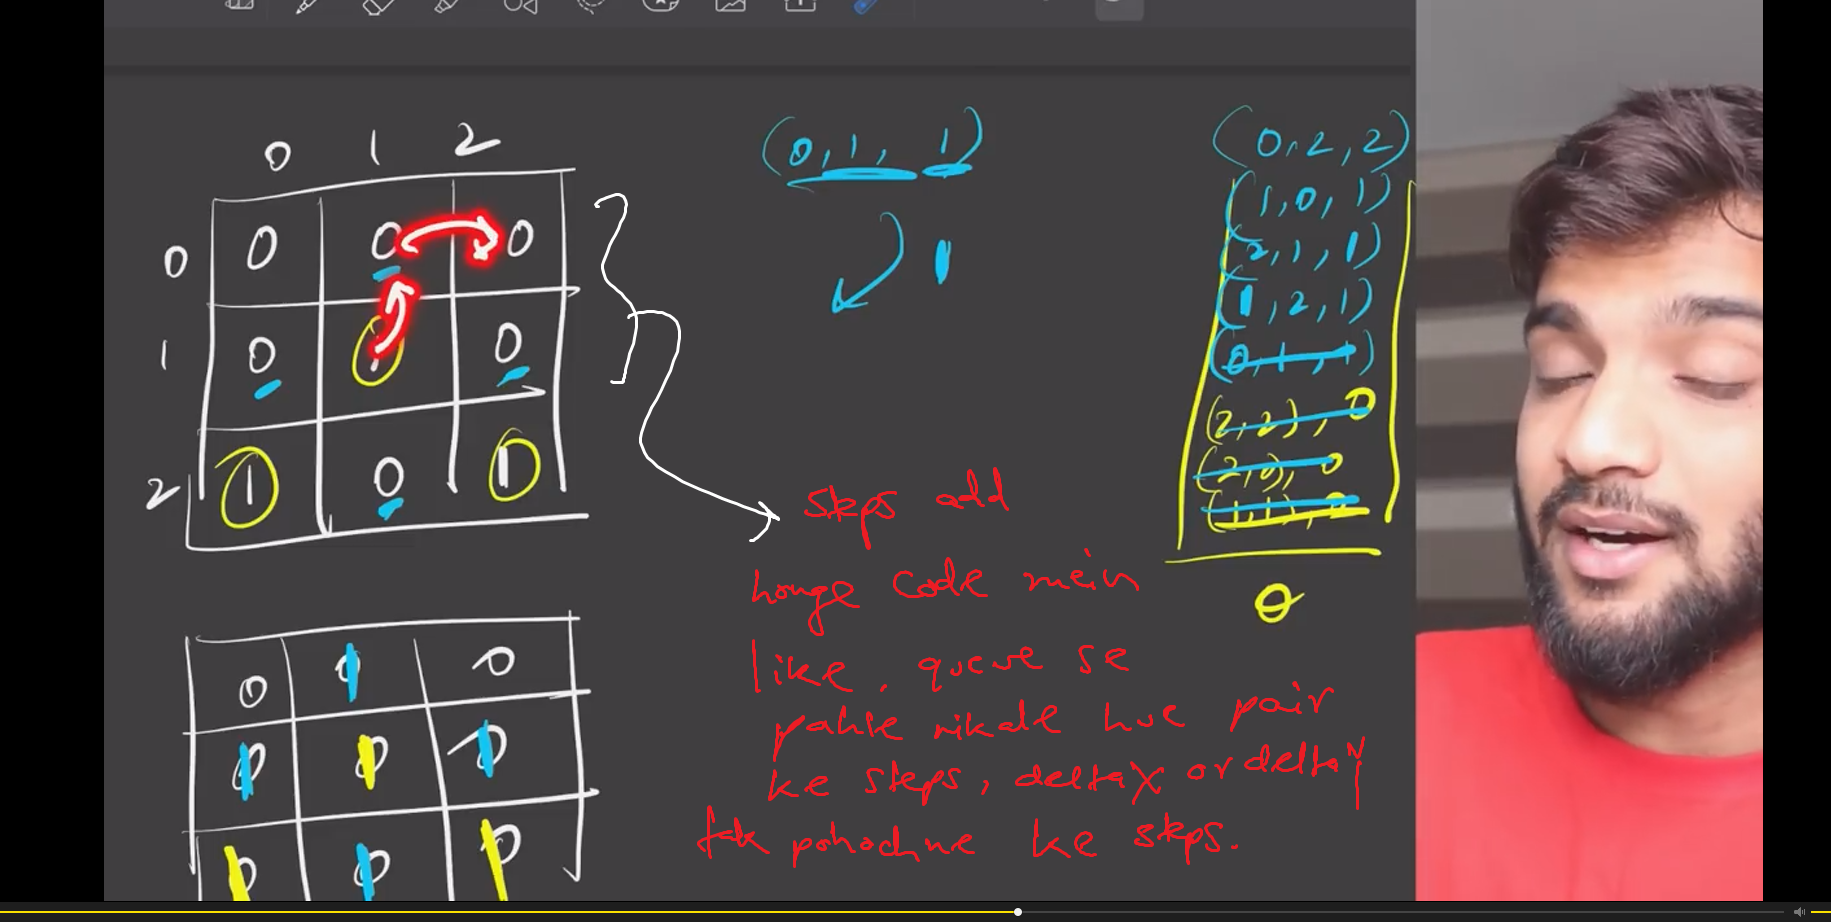 0 1 2
0 0 0 0
1 0 1 0
2 1 0 1
(0, 1, 1)
1
(0, 2, 2)
(1, 0, 1)
(2, 1, 1)
(1, 2, 1)
(0, 1, 1)
(2, 2), 0
(2, 0), 0
(1, 1), 0
0
steps add
honge code mein
like, queue se
pahle nikale hue pair
ke steps, deltax or deltaY
tak pohochne ke steps.
0 0 0
0 0 0
0 0 0